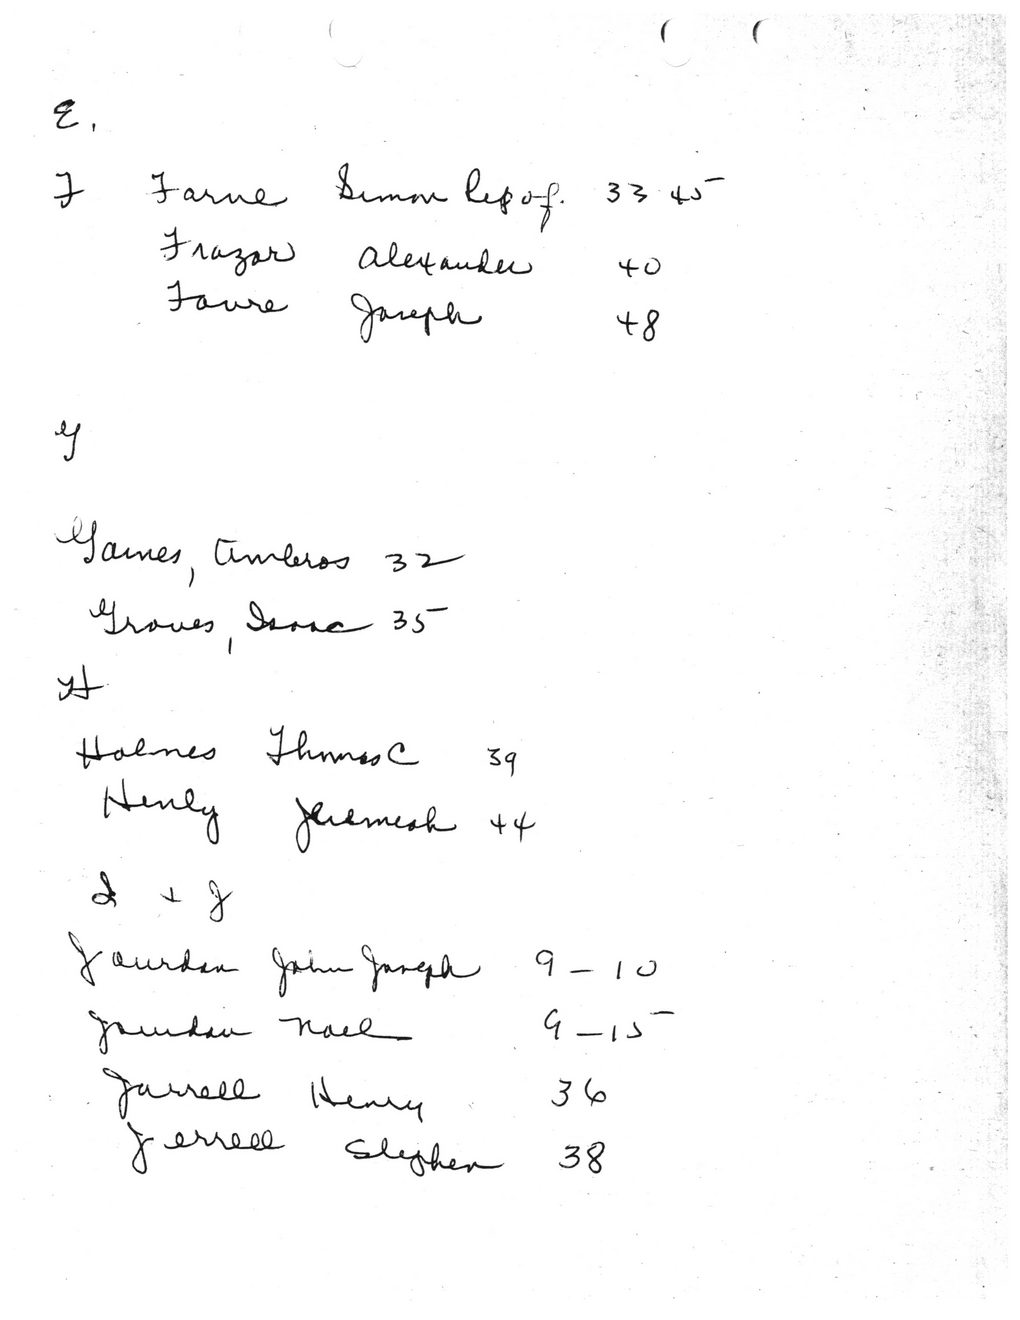 E.
F Farve Simon Rep of. 33 45
Frazar Alexander 40
Favre Joseph 48
G
Gaines, Ambros 32
Groves, Isaac 35
H
Holmes Thomas C 39
Henly Jeremeah 44
I + J
Jourdan John Joseph 9 - 10
Jourdan Noel 9 - 15
Jarrell Henry 36
Jerrell Stephen 38